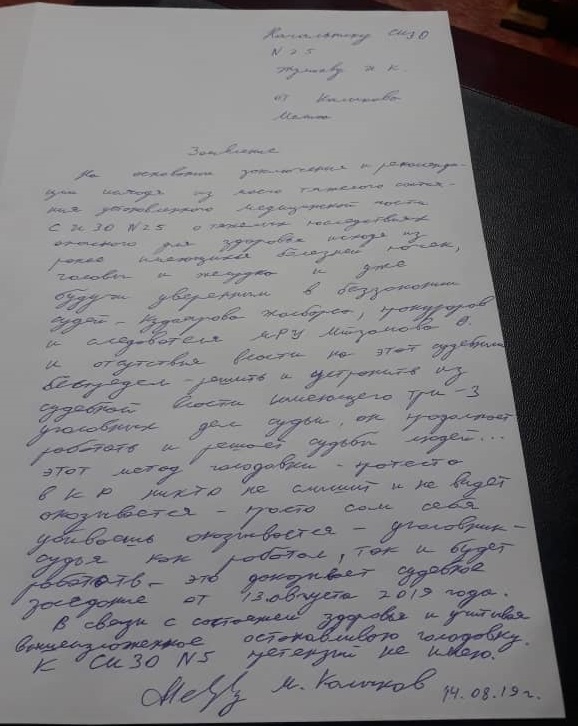 Начальнику СИЗО
N 25
Жу К.
от Калыкова
Мел
Заявление
На основании заключения и рекоменда-
ции исходя из моего тяжелого состоя-
ния установленного медицинской части
СИЗО N25 о тяжелых последствиях
опасного для здоровья исходя из
ранее имеющихся болезней почек,
головы и желудка и уже
будучи уверенным в беззаконии
судей - Жасбарса, прокуроров
и следователя МРУ Мизамова В.
и отсутствия власти на этот судебный
беспредел - решить и устранить из
судебной власти имеющего три - 3
уголовных дел судьи, он продолжает
работать и решает судьбы людей...
этот метод голодовки - протеста
в КР никто не слышит и не видет
оказывается - просто сам себя
убиваешь оказывается - уголовник-
судья как работал, так и будет
работать - это доказывает судебное
заседание от 13 августа 2019 года.
В связи с состоянием здоровья и учитывая
вышеизложенное останавливаю голодовку.
К СИЗО N5 претензий не имею.
М. Калыков 14.08.19 г.